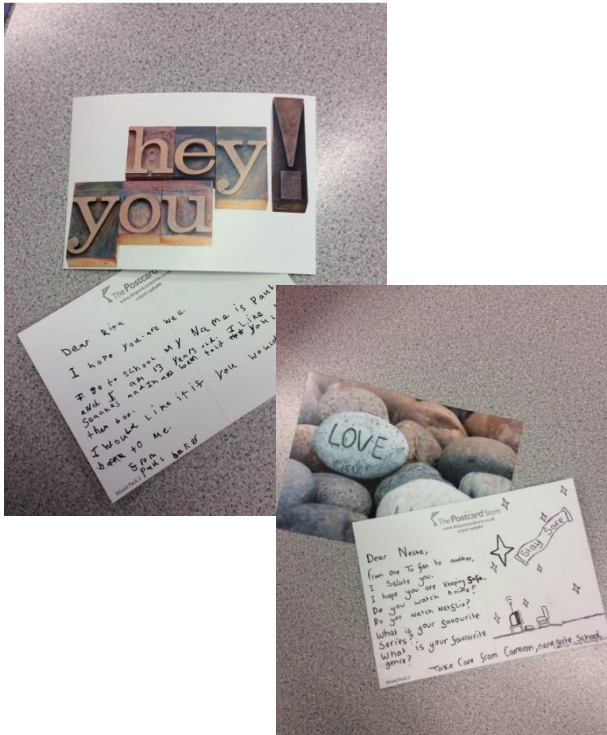 hey!
you
The Postcard Store
Dear Rita
I hope you are well
I go to school My Name is Paul
and I am 13 years old. I like
and have been told you
then too.
I would like it if you would
to me.
from
Paul baker
Mixed Pack
LOVE
The Postcard Store
Dear Nesta,
From one To fan to another,
I Salute you.
I hope you are keeping Safe.
Do you watch Anime?
Do you watch Netflix?
What is your favourite
Series?
What is your favourite
genre?
Take Care from Cameron, School
Stay Safe
Mixed Pack